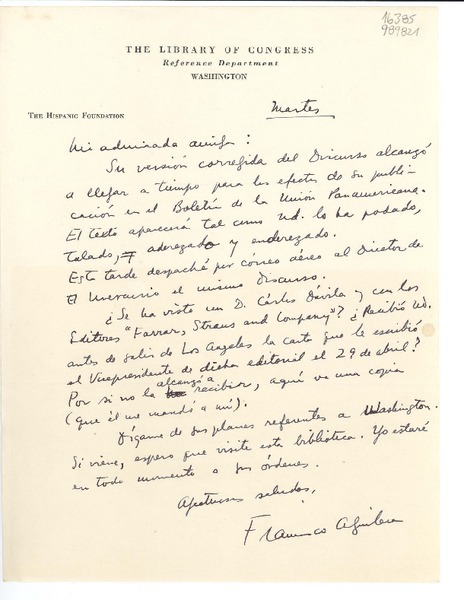 16385
989821
THE LIBRARY OF CONGRESS
Reference Department
WASHINGTON
THE HISPANIC FOUNDATION
Martes
Mi admirada amiga:
Su versión corregida del Discurso alcanzó
a llegar a tiempo para los efectos de su publi-
cación en el Boletín de la Unión Panamericana.
El texto aparecerá tal como Ud. lo ha podado,
talado, aderezado y enderezado.
Esta tarde despaché por correo aéreo al Director de
El Mercurio el mismo Discurso.
¿Se ha visto con D. Carlos Dávila y con los
Editores "Farrar, Straus and Company"? ¿Recibió Ud.
antes de salir de Los Angeles la carta que le escribió
el Vicepresidente de dicha editorial el 29 de abril?
Por si no la alcanzó a recibir, aquí va una copia
(que él me mandó a mí).
Dígame de sus planes referentes a Washington.
Si viene, espero que visite esta biblioteca. Yo estaré
en todo momento a sus órdenes.
Afectuosos saludos,
Francisco Aguilera